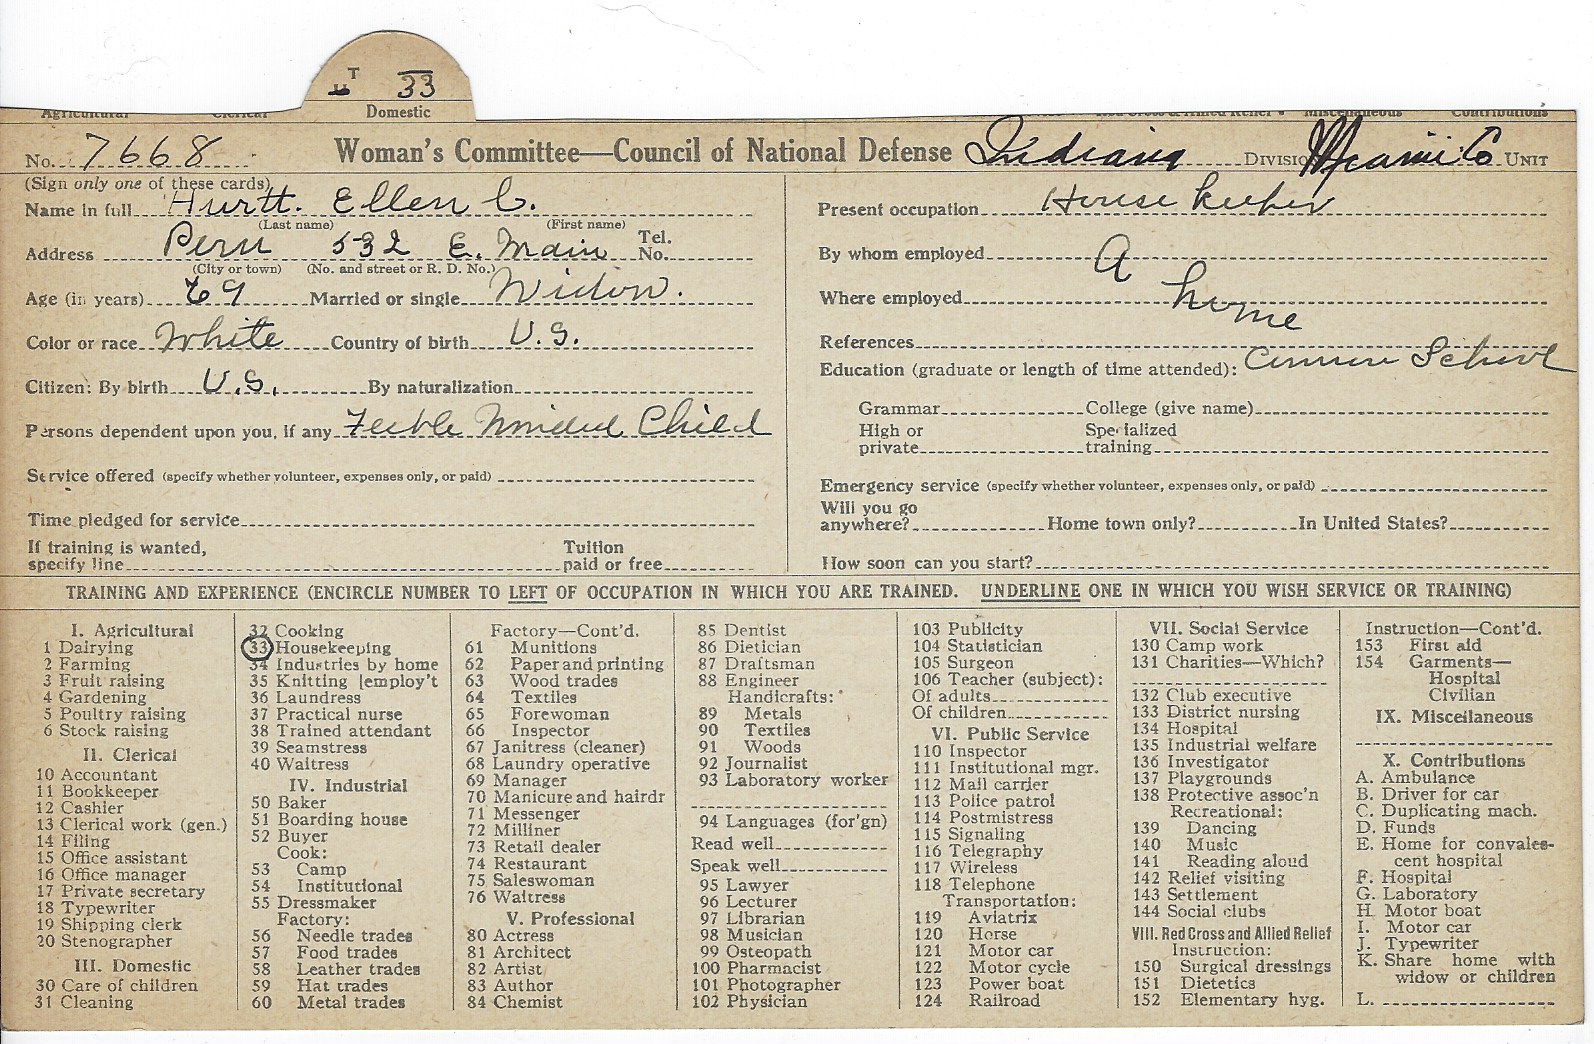 T 33
Domestic
No. 7668 Woman's Committee—Council of National Defense Indiana DIVISION Miami Co UNIT
(Sign only one of these cards)
Name in full Hurtt. Ellen C.
(Last name) (First name)
Address Peru 532 E. Main Tel. No.
(City or town) (No. and street or R. D. No.)
Age (in years) 69 Married or single Widow.
Color or race White Country of birth U.S.
Citizen: By birth U.S. By naturalization
Persons dependent upon you, if any Feeble Minded Child
Service offered (specify whether volunteer, expenses only, or paid)
Time pledged for service
If training is wanted,
specify line
Tuition
paid or free
Present occupation House keeper
By whom employed A
Where employed home
References
Education (graduate or length of time attended): Common School
Grammar College (give name)
High or
private
Specialized
training
Emergency service (specify whether volunteer, expenses only, or paid)
Will you go
anywhere? Home town only? In United States?
How soon can you start?
TRAINING AND EXPERIENCE (ENCIRCLE NUMBER TO LEFT OF OCCUPATION IN WHICH YOU ARE TRAINED. UNDERLINE ONE IN WHICH YOU WISH SERVICE OR TRAINING)
I. Agricultural
1 Dairying
2 Farming
3 Fruit raising
4 Gardening
5 Poultry raising
6 Stock raising
II. Clerical
10 Accountant
11 Bookkeeper
12 Cashier
13 Clerical work (gen.)
14 Filing
15 Office assistant
16 Office manager
17 Private secretary
18 Typewriter
19 Shipping clerk
20 Stenographer
III. Domestic
30 Care of children
31 Cleaning
32 Cooking
33 Housekeeping
34 Industries by home
35 Knitting [employ't
36 Laundress
37 Practical nurse
38 Trained attendant
39 Seamstress
40 Waitress
IV. Industrial
50 Baker
51 Boarding house
52 Buyer
Cook:
53 Camp
54 Institutional
55 Dressmaker
Factory:
56 Needle trades
57 Food trades
58 Leather trades
59 Hat trades
60 Metal trades
Factory—Cont'd.
61 Munitions
62 Paper and printing
63 Wood trades
64 Textiles
65 Forewoman
66 Inspector
67 Janitress (cleaner)
68 Laundry operative
69 Manager
70 Manicure and hairdr
71 Messenger
72 Milliner
73 Retail dealer
74 Restaurant
75 Saleswoman
76 Waitress
V. Professional
80 Actress
81 Architect
82 Artist
83 Author
84 Chemist
85 Dentist
86 Dietician
87 Draftsman
88 Engineer
Handicrafts:
89 Metals
90 Textiles
91 Woods
92 Journalist
93 Laboratory worker
94 Languages (for'gn)
Read well
Speak well
95 Lawyer
96 Lecturer
97 Librarian
98 Musician
99 Osteopath
100 Pharmacist
101 Photographer
102 Physician
103 Publicity
104 Statistician
105 Surgeon
106 Teacher (subject):
Of adults
Of children
VI. Public Service
110 Inspector
111 Institutional mgr.
112 Mail carrier
113 Police patrol
114 Postmistress
115 Signaling
116 Telegraphy
117 Wireless
118 Telephone
Transportation:
119 Aviatrix
120 Horse
121 Motor car
122 Motor cycle
123 Power boat
124 Railroad
VII. Social Service
130 Camp work
131 Charities—Which?
132 Club executive
133 District nursing
134 Hospital
135 Industrial welfare
136 Investigator
137 Playgrounds
138 Protective assoc'n
Recreational:
139 Dancing
140 Music
141 Reading aloud
142 Relief visiting
143 Settlement
144 Social clubs
VIII. Red Cross and Allied Relief
Instruction:
150 Surgical dressings
151 Dietetics
152 Elementary hyg.
Instruction—Cont'd.
153 First aid
154 Garments—
Hospital
Civilian
IX. Miscellaneous
X. Contributions
A. Ambulance
B. Driver for car
C. Duplicating mach.
D. Funds
E. Home for convales-
cent hospital
F. Hospital
G. Laboratory
H. Motor boat
I. Motor car
J. Typewriter
K. Share home with
widow or children
L.